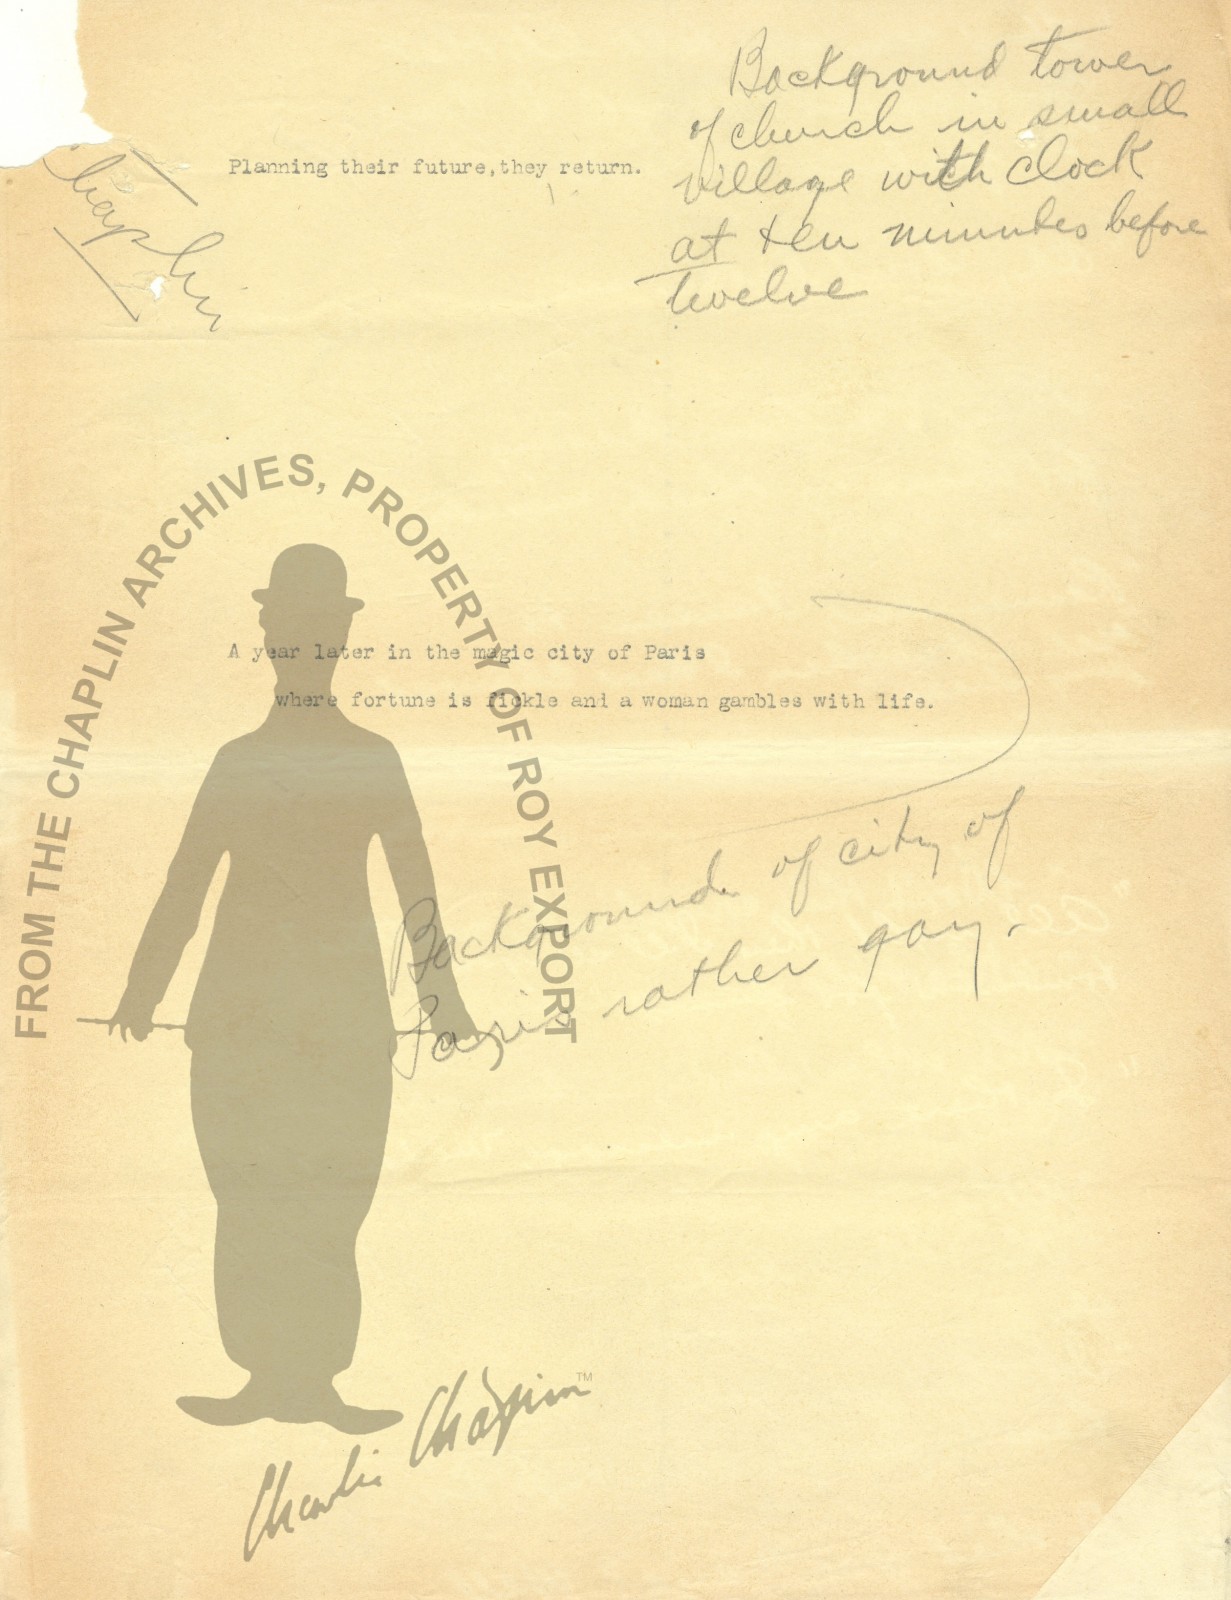 Background tower
of church in small
village with clock
at ten minutes before
twelve
Chaplin
Planning their future,they return.
A year later in the magic city of Paris
where fortune is fickle and a woman gambles with life.
Background of city of
Paris rather gay.
FROM THE CHAPLIN ARCHIVES, PROPERTY OF ROY EXPORT
Charlie Chaplin
TM